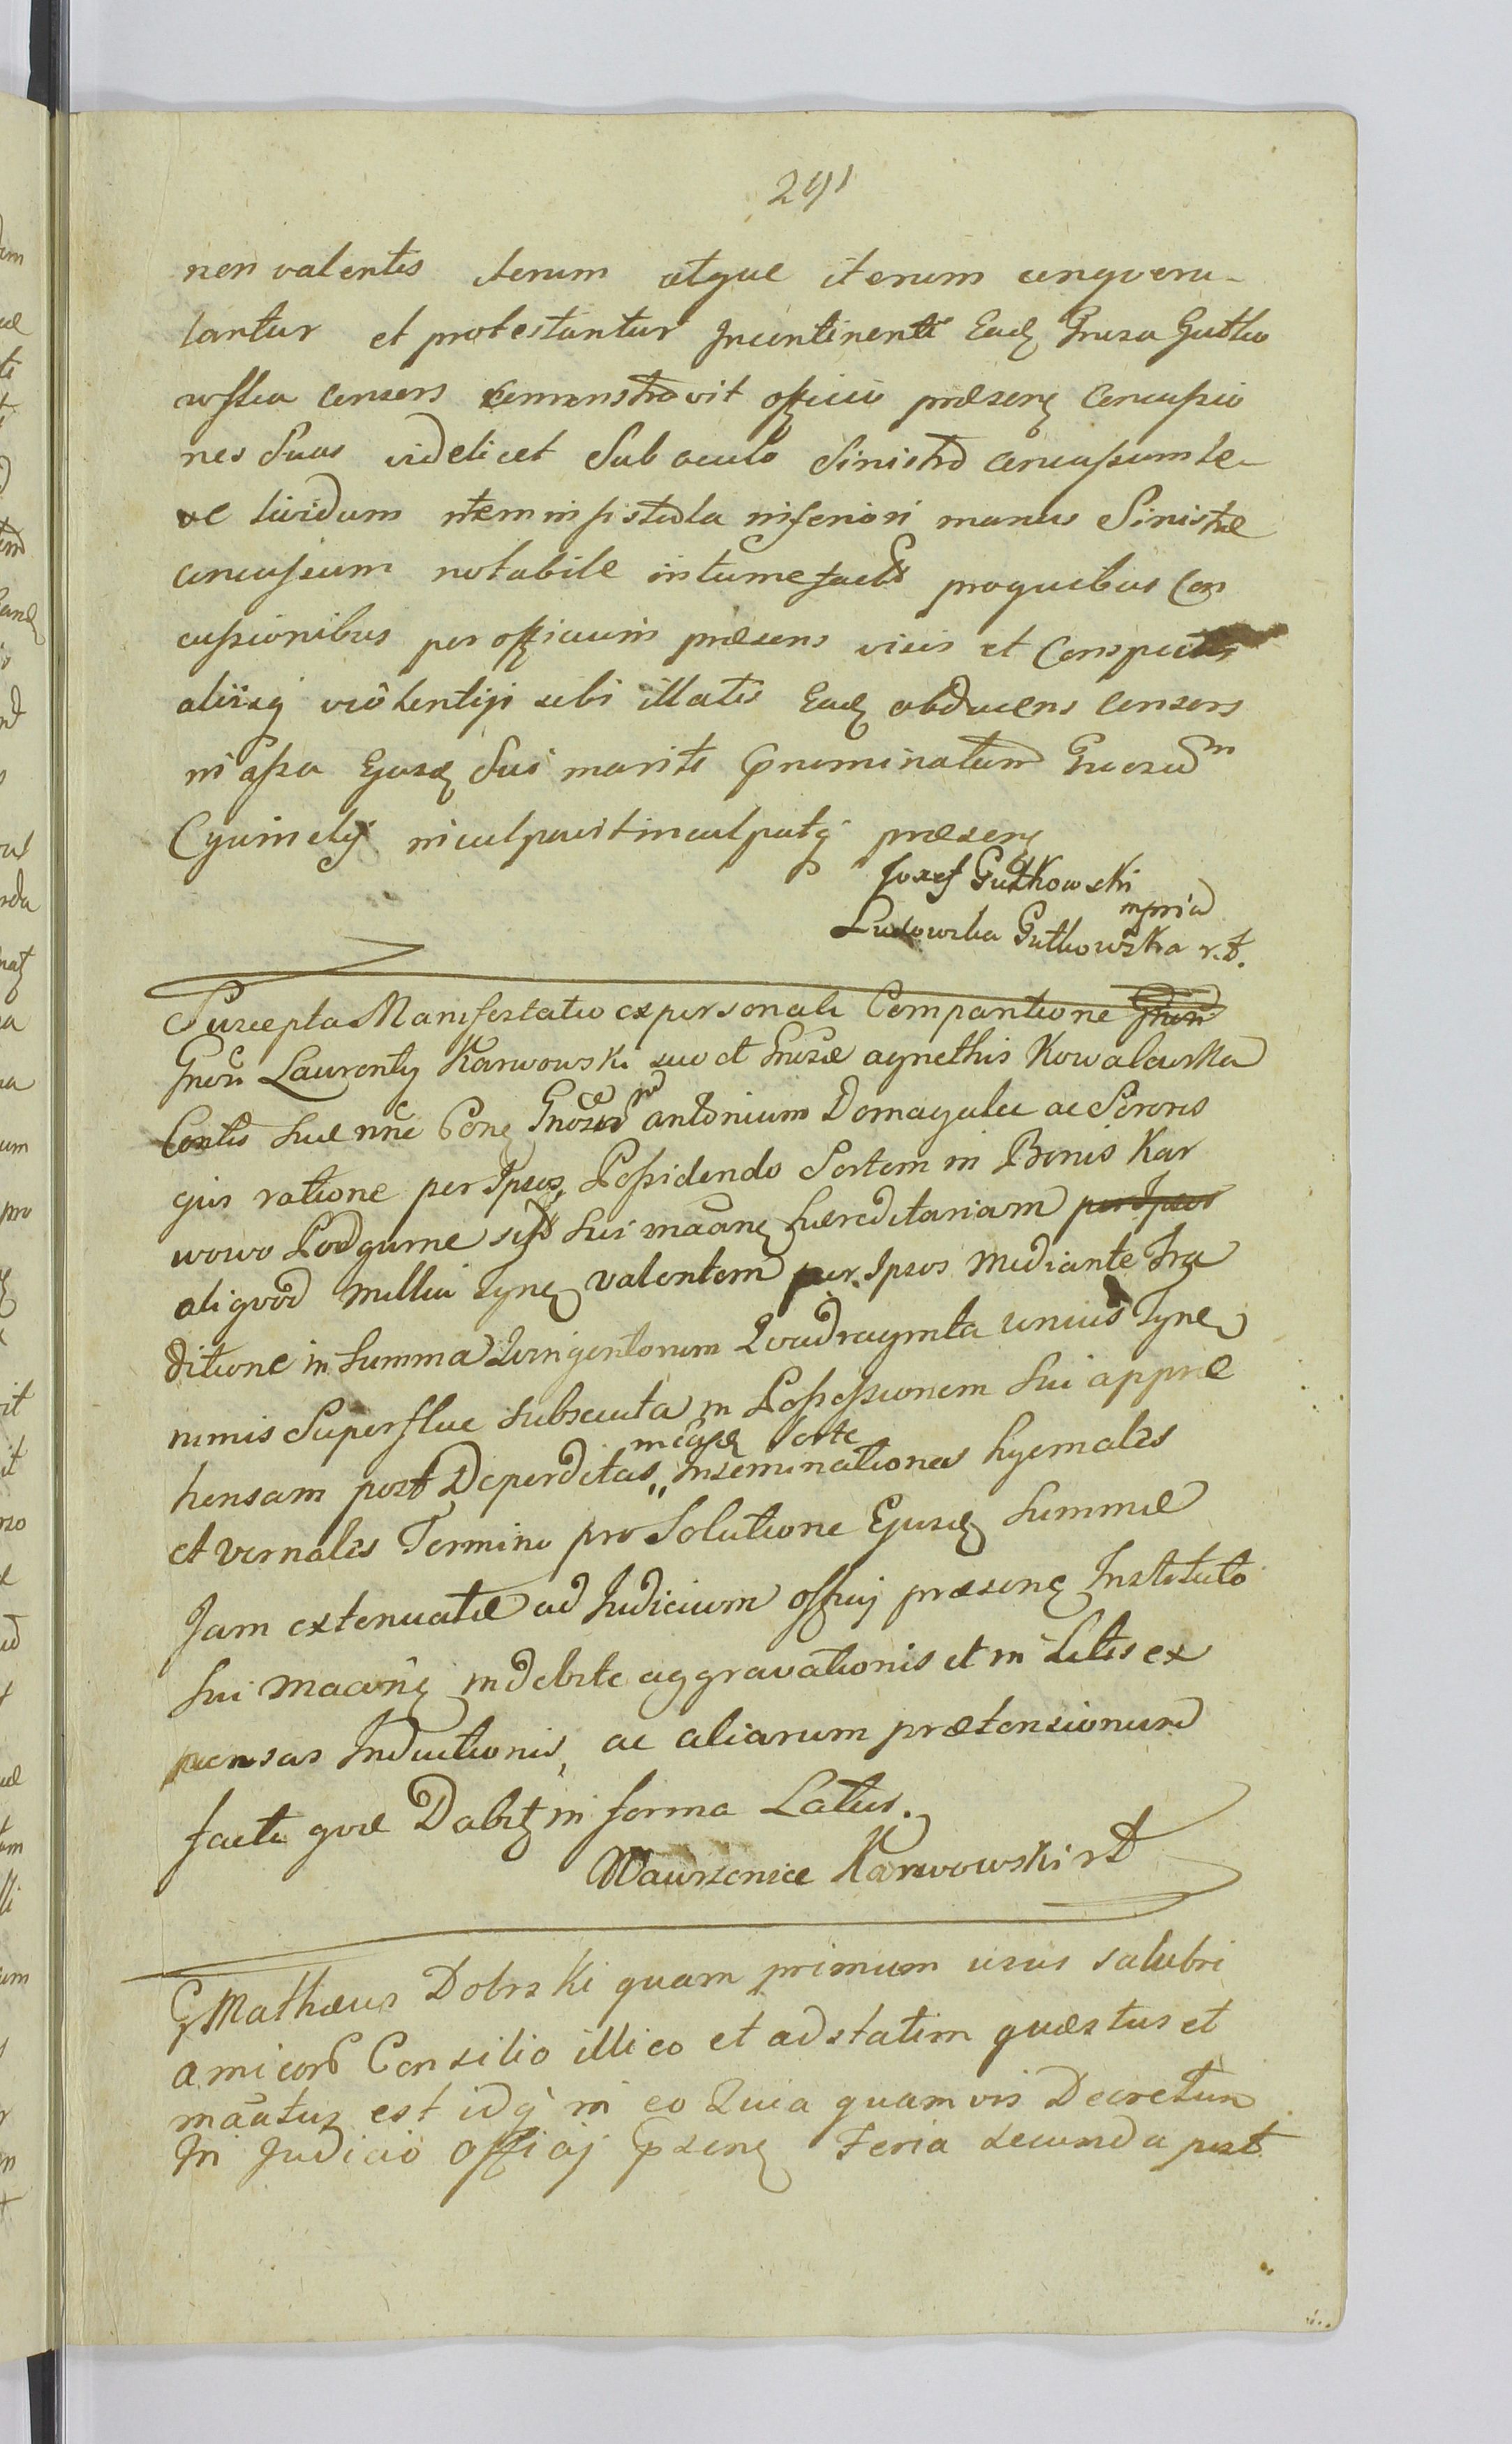 291
non valentes iterum atque iterum conqveru-
lantur et protestantur Incontinenti Ead Grosa Gutko
wska consors demonstravit officio præsenę concussio
nes Suas videlicet Sub oculo Sinistro concussum le-
ve lividum item in fistula inferiori manus Sinistræ
concussum notabile intumefactũ pro quibus Con
cussionibus per officium præsens visis et conspectis
aliisq violentijs sibi illatis Ead obducens consors
in assa Ejusd Sui mariti Prnominatum Grosum
Cywinsky inculpavit inculpatq præsenę
Jozef Gutkowski
mpria
Ludowika Gutkowska r.t.
Suscepta Manifestatio ex personali Comparitione
Grosi Laurenty Karwowski suo et Grosæ agnethis Kowalewska
Contis Suæ nñe Cone Grosum antonium Domagala ac Sororis
ejus ratione per Ipsos Possidendo Sortem in Bonis Kar
wowo Podgurne sis Sui maãnę hæreditariam per Ipsos
aliqvod millia tynę valentem per Ipsos mediante Tra
ditione in Summa Qvingentorum Qvadraginta unius Tynę
nimis Superflue subsecuta in Possessionem Sui appræ
hensam post Deperditas inseminationes hyemales
in eadę sorte
et vernales Termino pro Solutione Ejusdę Summæ
Jam extenuatæ ad Judicium officij præsenę Instituto
Sui maanę indebite aggravationis et in Litis ex
pensas Inductionis, ac aliarum prætensionum
facta qvæ Dabit in forma Latius.
Wawrzeniec Karwowski rt
G Mathæus Dobrski quam primum usus salubri
amicorũ Consilio illico et adstatim quæstus et
mãatus est idq in eo Quia quamvis Decretum
In Judicio Officij Prsenę Feria secunda post